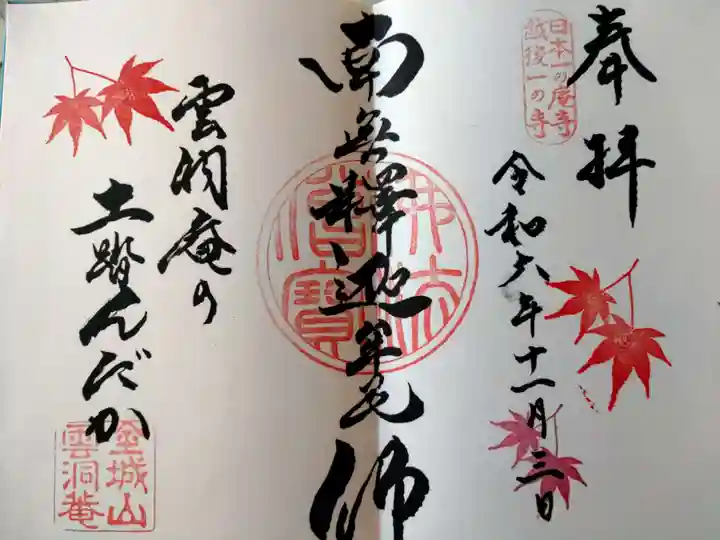 奉拝
日本一の庵寺
越後一の寺
令和六年十一月三日
南無釋迦牟尼佛
佛法僧寳
雲洞庵の
土踏んだか
金城山
雲洞菴